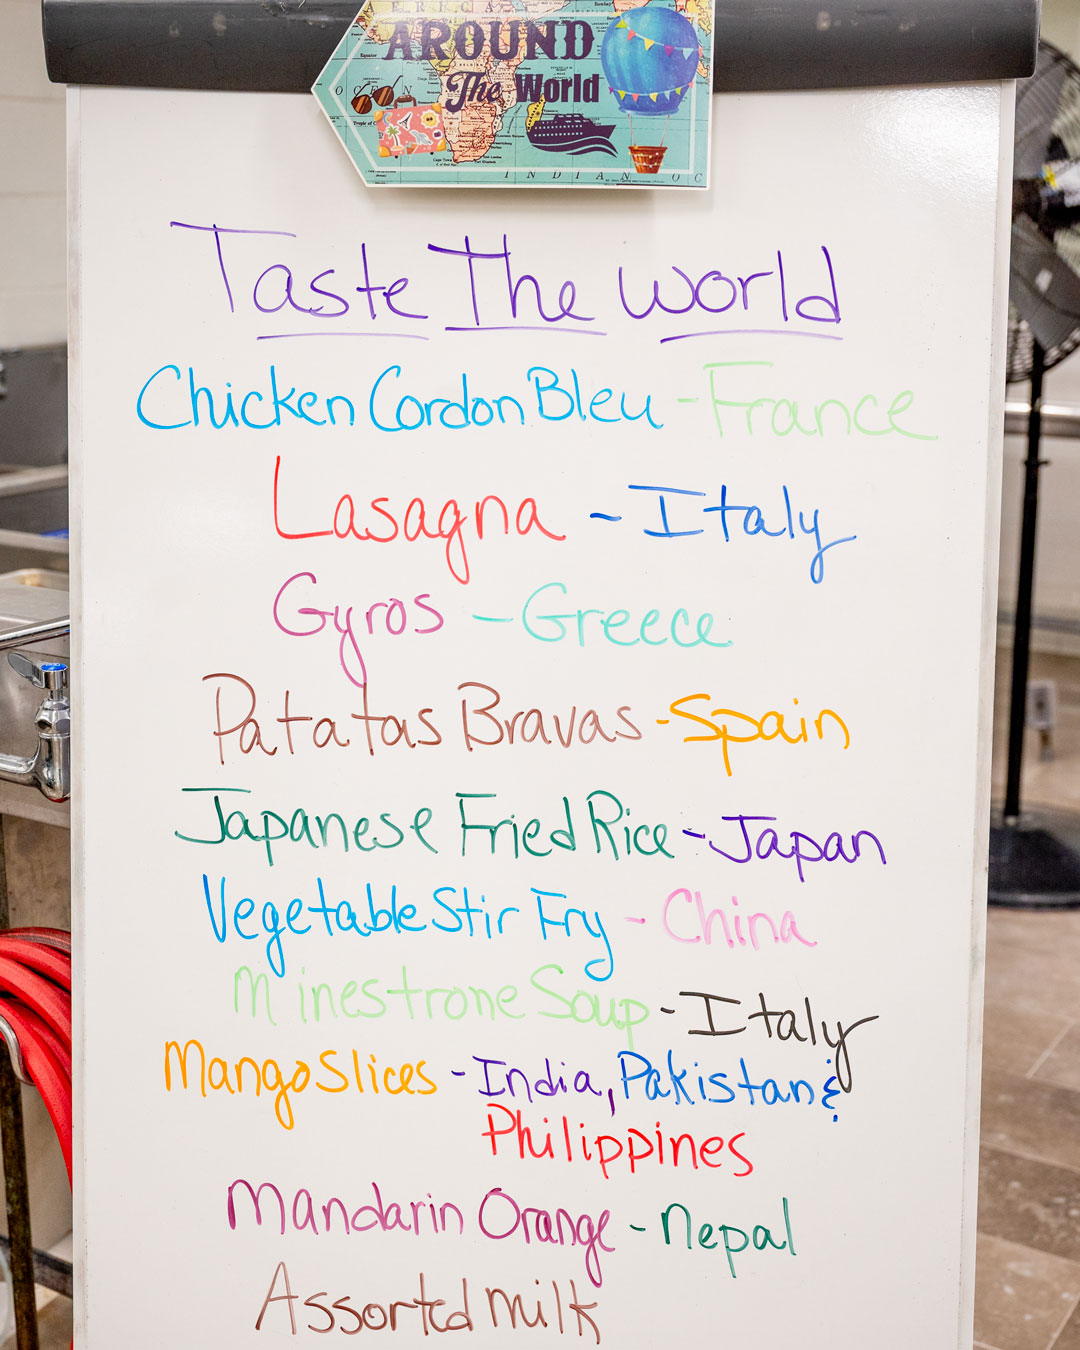 AROUND
The World
Taste The World
Chicken Cordon Bleu - France
Lasagna - Italy
Gyros - Greece
Patatas Bravas - Spain
Japanese Fried Rice - Japan
Vegetable Stir Fry - China
Minestrone Soup - Italy
Mango Slices - India, Pakistan &
Philippines
Mandarin Orange - Nepal
Assorted Milk